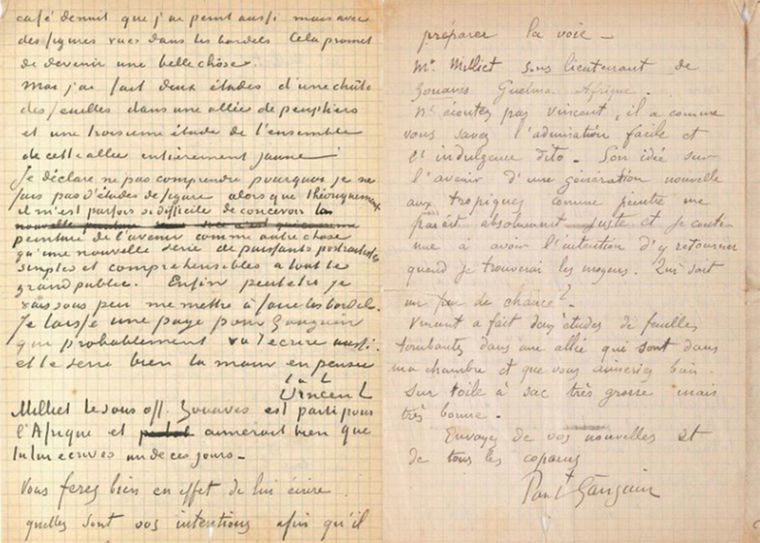 café de nuit que j'ai peint aussi mais avec
des figures vues dans les bordels. Cela promet
de devenir une belle chôse.
Moi j'ai fait deux études d'une chûte
des feuilles dans une allée de peupliers
et une troisieme étude de l'ensemble
de cette allée entièrement jaune.
Je déclare ne pas comprendre pourquoi je ne
fais pas d'études de figure alors que théoriquement
il m'est parfois si difficile de concevoir la
peinture de l'avenir comme autre chose
qu'une nouvelle serie de puissants portraitistes
simples et comprehensibles à tout le
grand public. Enfin peut etre je
vais sous peu me mettre à faire les bordels.
Je laisse une page pour Gauguin
qui probablement va t'ecrire aussi.
et te serre bien la main en pensée
t. à t.
Vincent
Milliet le sous off. Zouaves est parti pour
l'Afrique et aimerait bien que
tu lui ecrives un de ces jours –
Vous ferez bien en effet de lui écrire
quelles sont vos intentions afin qu'il
préparer la voie –
Mr Milliet sous lieutenant de
Zouaves Guelma Afrique.
N' écoutez pas Vincent, il a comme
vous savez l'admiration facile et
l' indulgence dito. Son idée sur
l'avenir d'une génération nouvelle
aux tropiques comme peintre me
parait absolument juste et je conti
nue à avoir l'intention d'y retourner
quand je trouverai les moyens. Qui sait
un peu de chance?
Vincent a fait deux études de feuilles
tombantes dans une allée qui sont dans
ma chambre et que vous aimeriez bien.
Sur toile à sac très grosse mais
très bonne.
Envoyez de vos nouvelles et
de tous les copains
Paul Gauguin